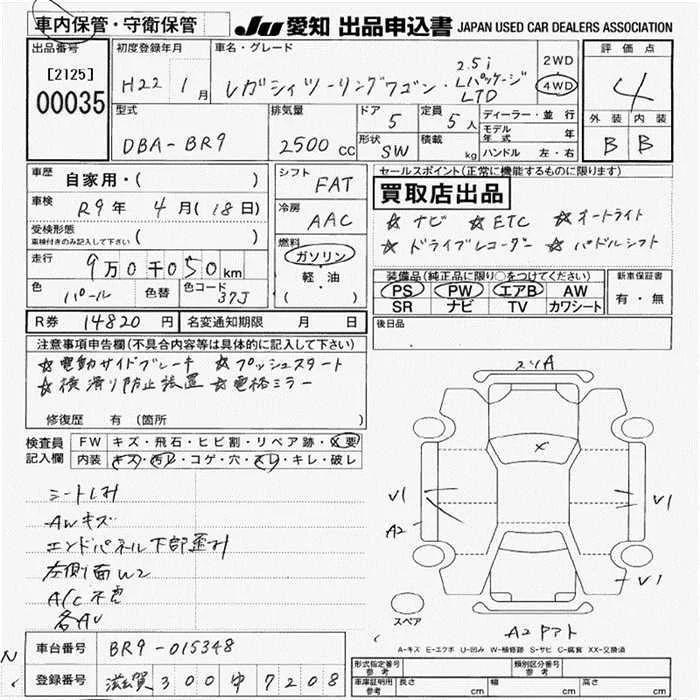 車内保管・守衛保管 JU 愛知 出品申込書 JAPAN USED CAR DEALERS ASSOCIATION
出品番号 初度登録年月 車名・グレード 評価点
[2125] 00035 H22年 1月 レガシィツーリングワゴン・2.5i Lパッケージ LTD 2WD 4WD 4
型式 排気量 ドア 定員 ディーラー・並行 外装 内装
DBA-BR9 2500cc 5 5人 モデル年式 年 B B
形状 SW 積載 kg ハンドル 左・右
車歴 自家用・( ) シフト FAT セールスポイント(正常に機能するものに限ります)
車検 R9年 4月(18日) 冷房 AAC 買取店出品
受検形態 車検付きのみ記入して下さい ( ) ☆ナビ ☆ETC ☆オートライト
燃料 ガソリン 軽・油 ( ) ☆ドライブレコーダー ☆パドルシフト
走行 9万0千050km
色 パール 色替 色コード 37J
装備品(純正品に限り○をつけてください) 新車保証書
PS PW エアB AW 有・無
SR ナビ TV カワシート
R券 14820円 名変通知期限 月 日 後日品
注意事項申告欄(不具合内容等は具体的に記入して下さい)
☆電動サイドブレーキ ☆プッシュスタート
☆横滑り防止装置 ☆電格ミラー
修復歴 有 (箇所 )
検査員記入欄 FW キズ・飛石・ヒビ割・リペア跡・X要
内装 キズ・汚レ・コゲ・穴・スレ・キレ・破レ
シートしみ
AWキズ
エンドパネル下部歪み
左側面W2
A/C不良
各AU
V1
A2
V1
V1
スペア
A2
A-キズ E-エクボ U-凹み W-補修跡 S-サビ C-腐食 XX-交換済
車台番号 BR9-015348
登録番号 滋賀 300 ゆ 7208
形式指定番号 参考 類別区分番号 参考
車庫証明用 参考 長さ cm 幅 cm 高さ cm